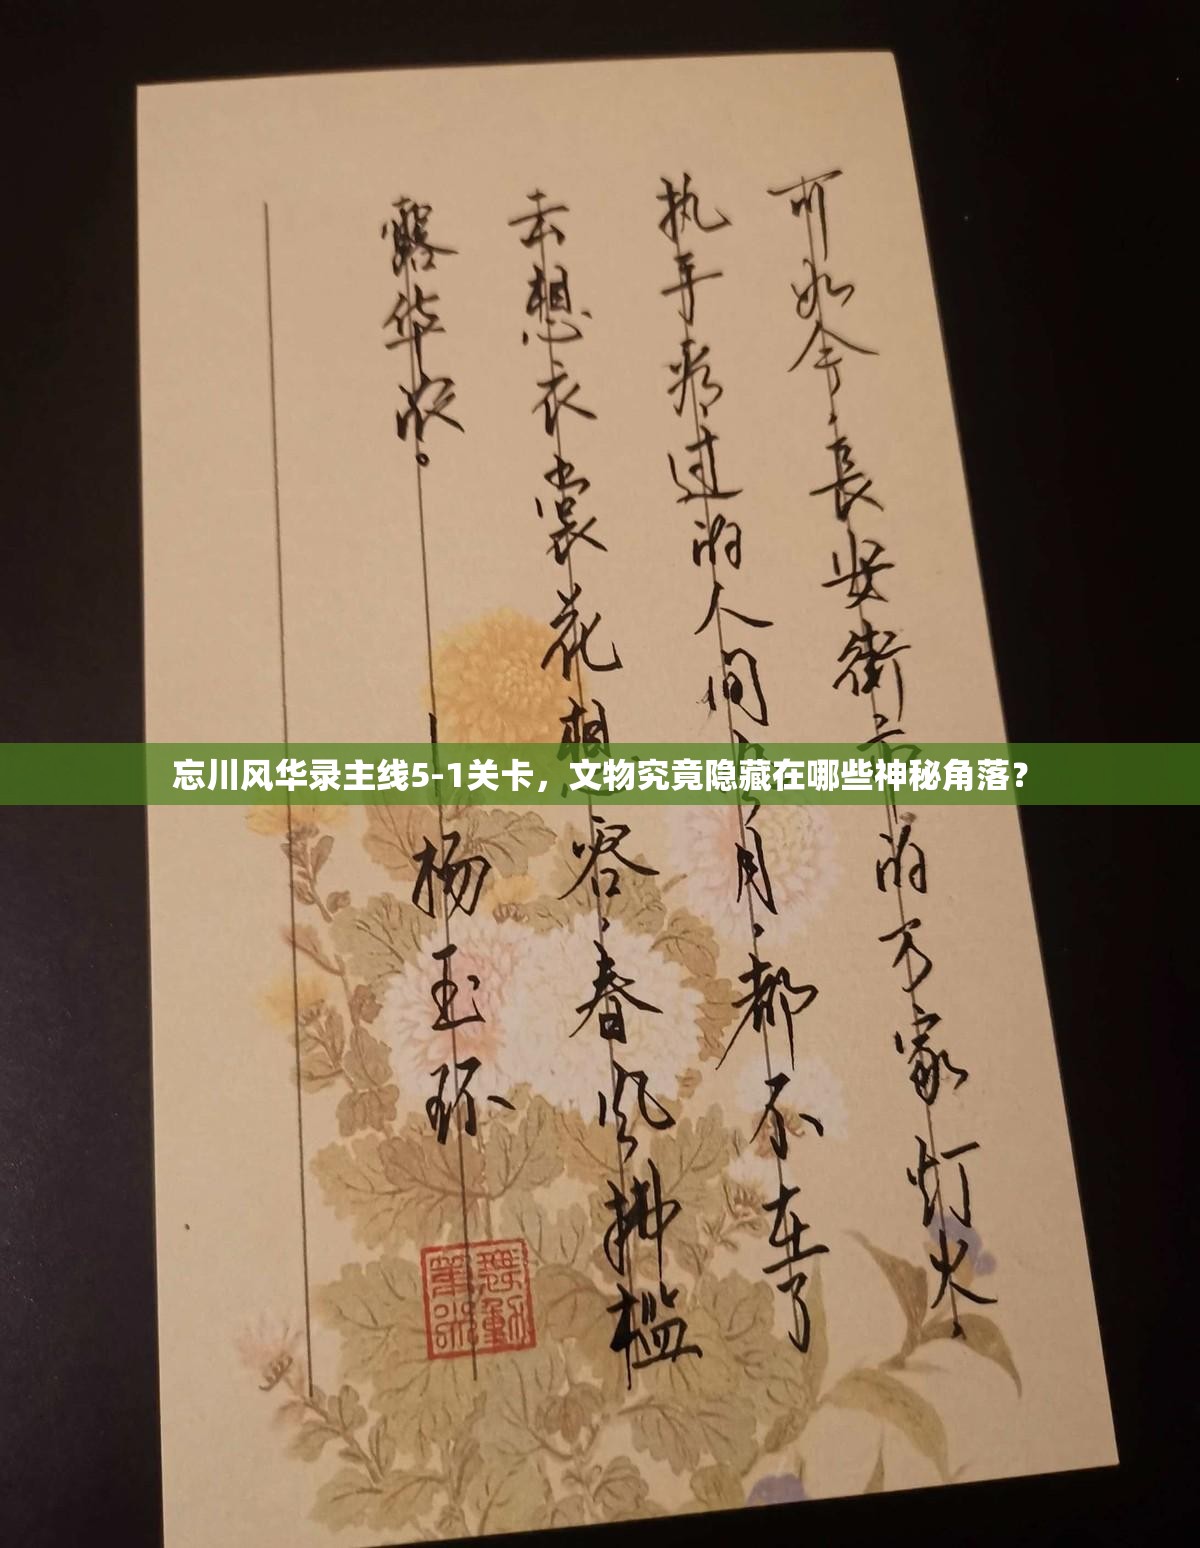 可如今、長安街市的万家灯火、
执手看过的人间岁月、都不在了
云想衣裳花想容、春风拂槛
露华浓。
—杨玉环
忘川风华录主线5-1关卡，文物究竟隐藏在哪些神秘角落？